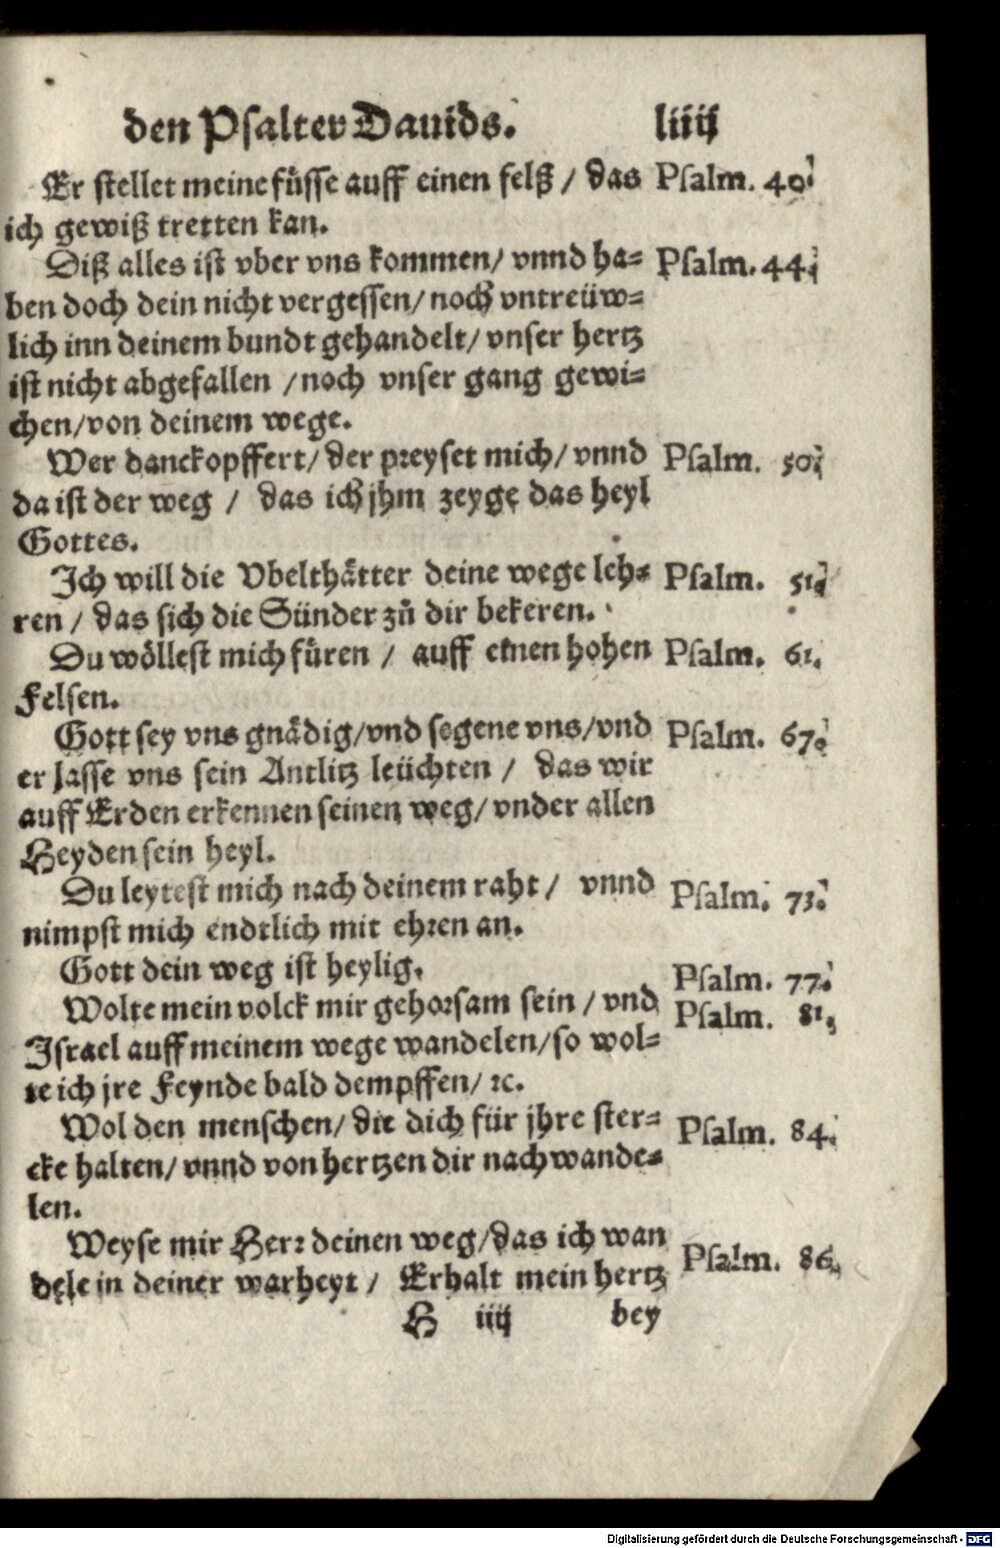 den Psalter Dauids. liiij
Er stellet meine füsse auff einen felß / das Psalm. 40.
ich gewiß tretten kan.
Diß alles ist vber vns kommen/ vnnd ha= Psalm. 44.
ben doch dein nicht vergessen/ noch vntreüw=
lich inn deinem bundt gehandelt/ vnser hertz
ist nicht abgefallen /noch vnser gang gewi=
chen/von deinem wege.
Wer danckopffert/ der preyset mich/ vnnd Psalm. 50.
da ist der weg / das ich jhm zeyge das heyl
Gottes.
Ich will die Vbelthätter deine wege leh= Psalm. 51.
ren / das sich die Sünder zů dir bekeren.
Du wöllest mich füren / auff einen hohen Psalm. 61.
Felsen.
Gott sey vns gnädig/vnd segene vns/vnd Psalm. 67.
er lasse vns sein Antlitz leüchten / das wir
auff Erden erkennen seinen weg/ vnder allen
Heyden sein heyl.
Du leytest mich nach deinem raht / vnnd Psalm. 73.
nimpst mich endtlich mit ehren an.
Gott dein weg ist heylig. Psalm. 77.
Wolte mein volck mir gehorsam sein / vnd Psalm. 81.
Israel auff meinem wege wandelen/so wol=
te ich jre Feynde bald dempffen/ ꝛc.
Wol den menschen/ die dich für jhre ster= Psalm. 84.
cke halten/ vnnd von hertzen dir nachwande=
len.
Weyse mir Herr deinen weg/das ich wan Psalm. 86.
dele in deiner warheyt / Erhalt mein hertz
H iiij bey
Digitalisierung gefördert durch die Deutsche Forschungsgemeinschaft - DFG